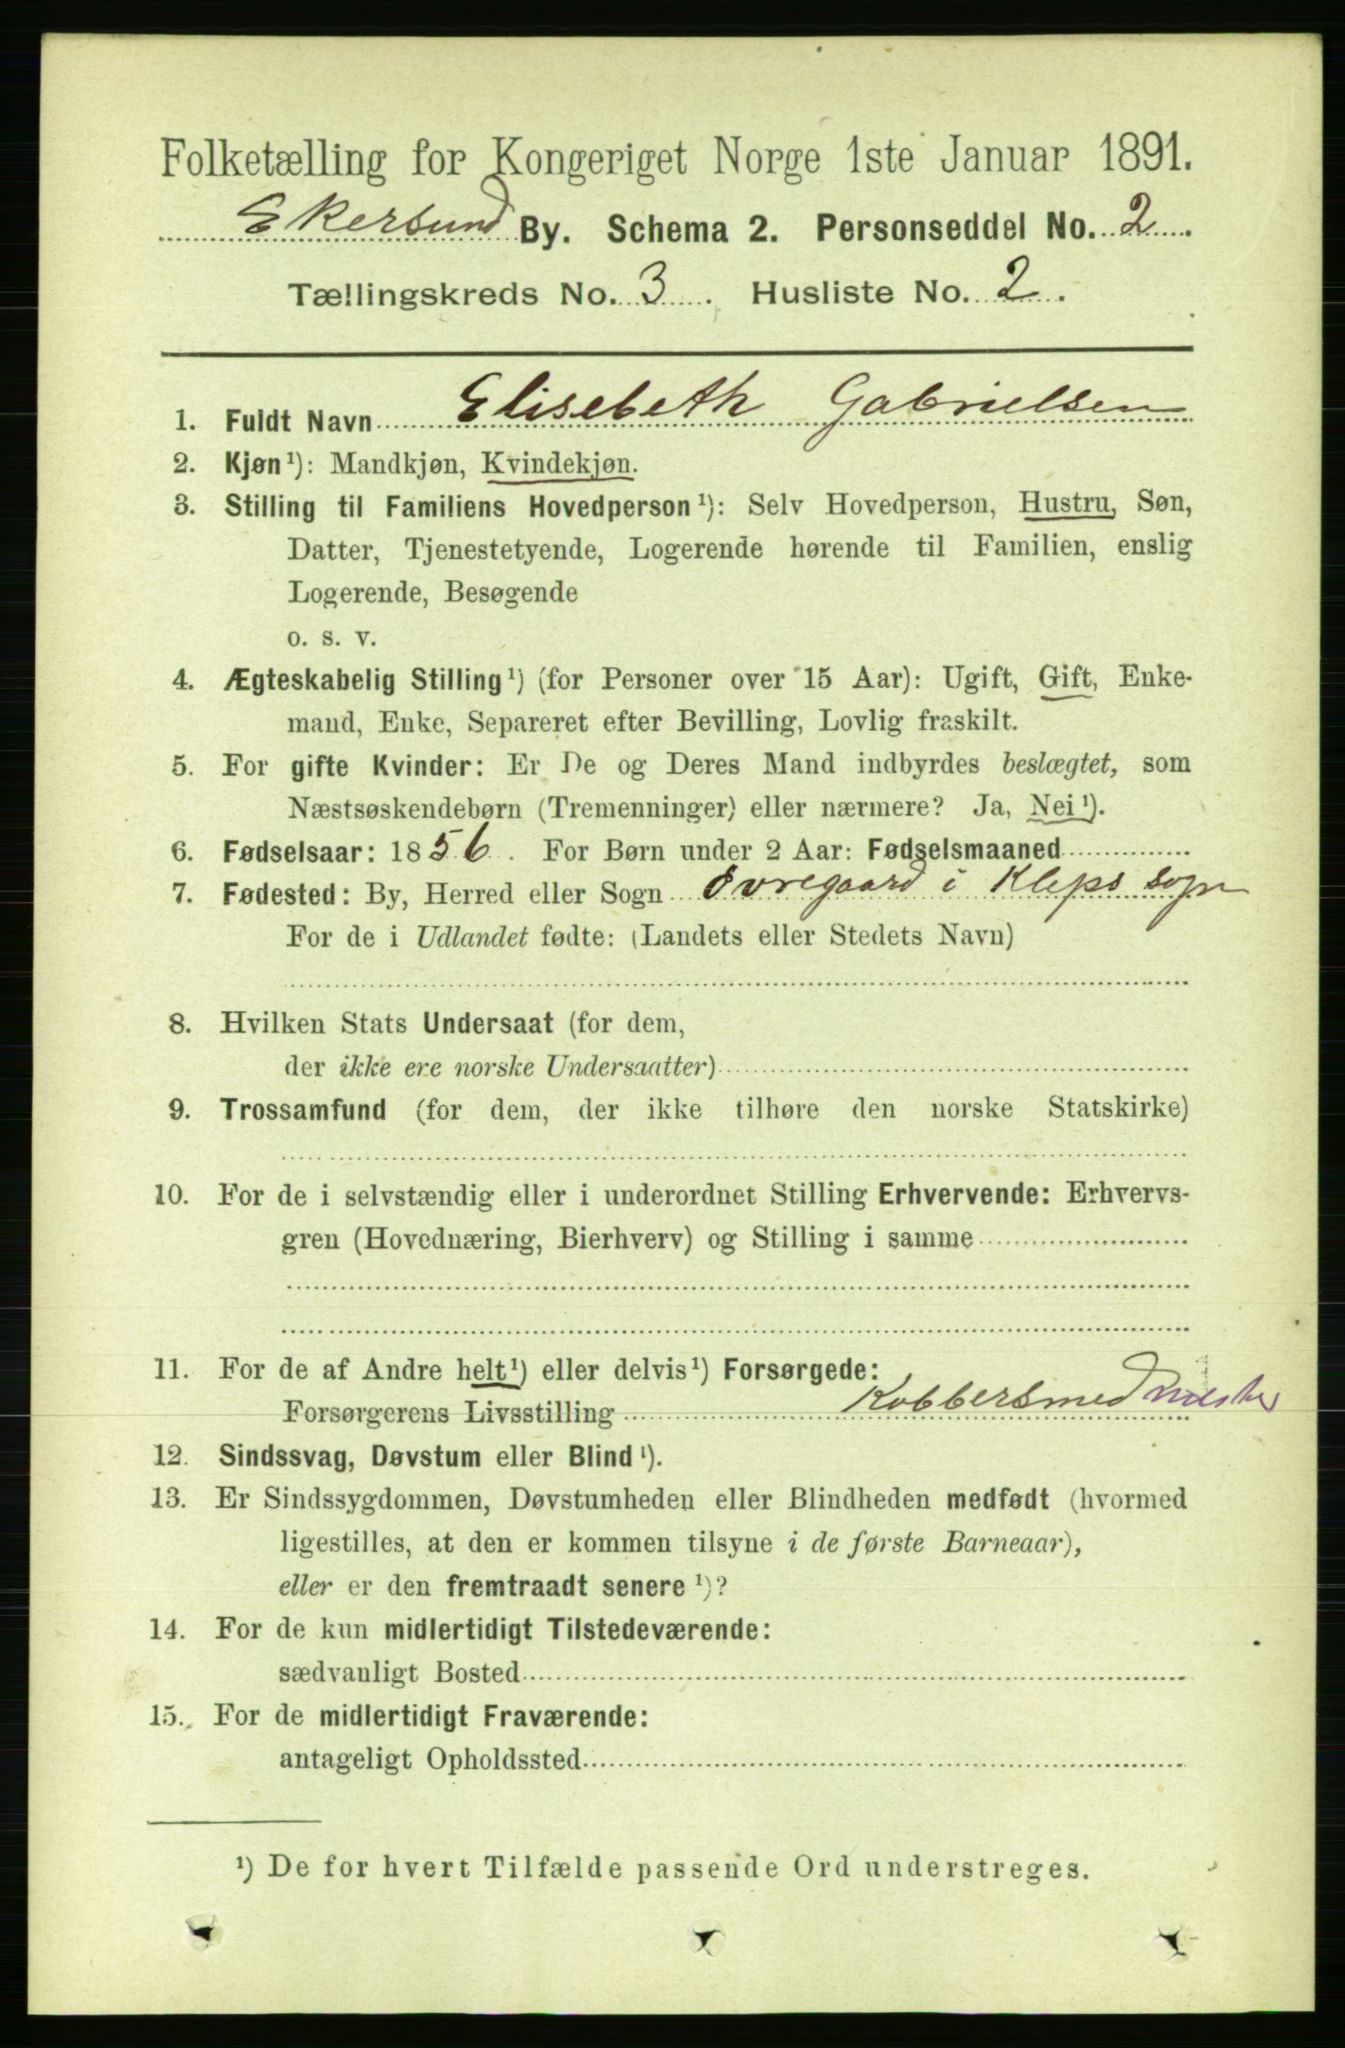 Folketælling for Kongeriget Norge 1ste Januar 1891.
Ekersund By. Schema 2. Personseddel No. 2.
Tællingskreds No. 3. Husliste No. 2.
1. Fuldt Navn Elisebeth Gabrielsen
2. Kjøn¹): Mandkjøn, Kvindekjøn.
3. Stilling til Familiens Hovedperson¹): Selv Hovedperson, Hustru, Søn,
Datter, Tjenestetyende, Logerende hørende til Familien, enslig
Logerende, Besøgende
o. s. v.
4. Ægteskabelig Stilling¹) (for Personer over 15 Aar): Ugift, Gift, Enke-
mand, Enke, Separeret efter Bevilling, Lovlig fraskilt.
5. For gifte Kvinder: Er De og Deres Mand indbyrdes beslægtet, som
Næstsøskendebørn (Tremenninger) eller nærmere? Ja, Nei¹).
6. Fødselsaar: 1856. For Børn under 2 Aar: Fødselsmaaned
7. Fødested: By, Herred eller Sogn Øvregaard i Kleps sogn
For de i Udlandet fødte: (Landets eller Stedets Navn)
8. Hvilken Stats Undersaat (for dem,
der ikke ere norske Undersaatter)
9. Trossamfund (for dem, der ikke tilhøre den norske Statskirke)
10. For de i selvstændig eller i underordnet Stilling Erhvervende: Erhvervs-
gren (Hovednæring, Bierhverv) og Stilling i samme
11. For de af Andre helt¹) eller delvis¹) Forsørgede:
Forsørgerens Livsstilling Kobbersmed mester
12. Sindssvag, Døvstum eller Blind¹).
13. Er Sindssygdommen, Døvstumheden eller Blindheden medfødt (hvormed
ligestilles, at den er kommen tilsyne i de første Barneaar),
eller er den fremtraadt senere¹)?
14. For de kun midlertidigt Tilstedeværende:
sædvanligt Bosted
15. For de midlertidigt Fraværende:
antageligt Opholdssted
¹) De for hvert Tilfælde passende Ord understreges.